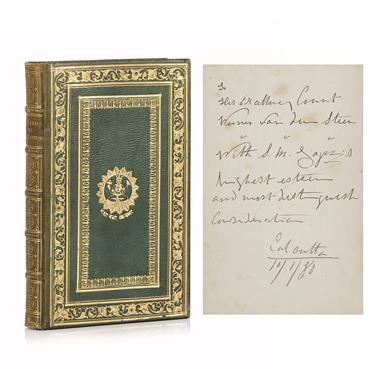 To
His Excellency Count
van den Steen
" " "
With S. M. Tagore's
highest esteem
and most distinguish
Consideration
Calcutta
10/1/80